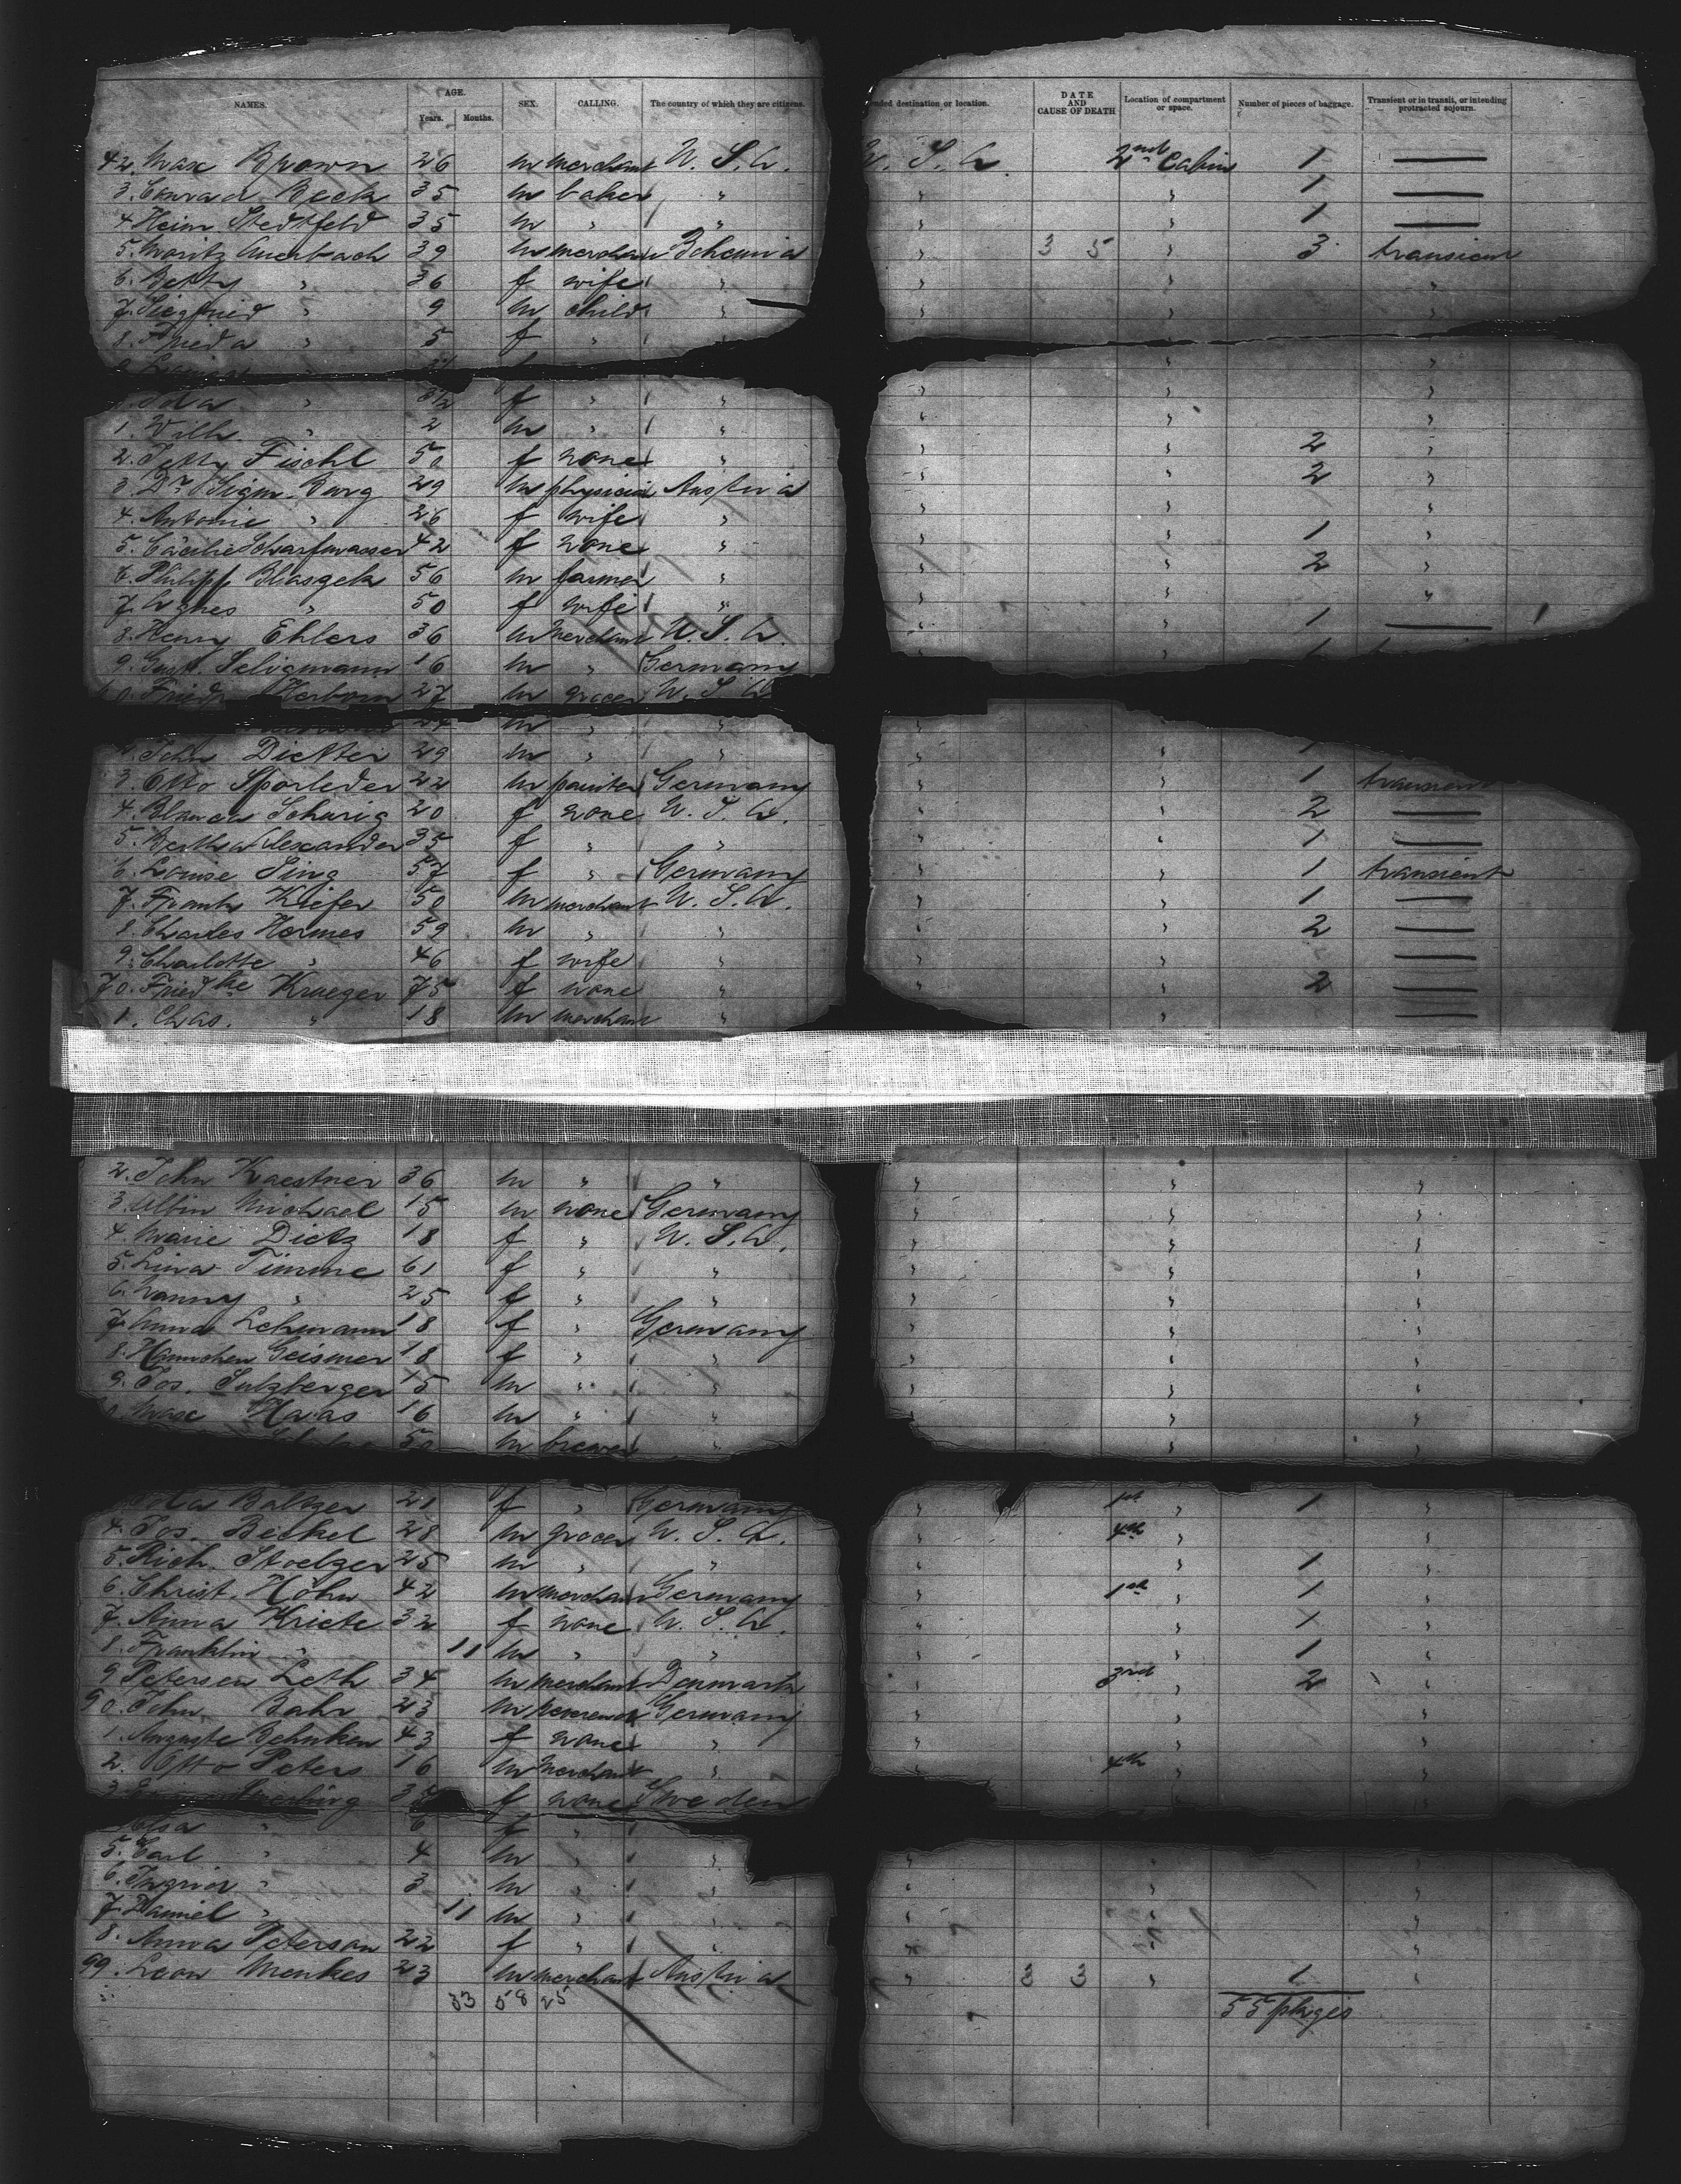 NAMES. AGE. Years. Months. SEX. CALLING. The country of which they are citizens. ended destination or location. DATE AND CAUSE OF DEATH Location of compartment or space. Number of pieces of baggage. Transient or in transit, or intending protracted sojourn.
42. Max Brown 26 m merchant U. S. A. U. S. A. 2nd Cabin 1 —
3. Conrad Beck 35 m baker " " " 1 —
4. Heinr Stedtfeld 35 m " " " " 1 —
5. Moritz Auerbach 39 m merchant Bohemia " 3 5 " 3 transient
6. Betty " 36 f wife " " " "
7. Siegfried " 9 m child " " " "
8. Frieda " 5 f " " "
" 3½ f " " " " "
1. Wilh. " 2 m " " " " "
2. Fischl 50 f none " " " 2 "
3. Dr Sigm. Burg 29 m physician Austria " " 2 "
4. Antonie " 26 f wife " " " "
5. Cäcilie Scharfwasser 42 f none " " " 1 "
6. Philipp Blaszek 56 m farmer " " " 2 "
7. Agnes " 50 f wife " " " "
8. Henry Ehlers 36 m merchant U. S. A. " " 1 —
9. Gust. Seligmann 16 m " Germany
60. Friedr Herborn 27 m grocer U. S. A.
24 m " "
2. John Dickter 29 m " " " "
3. Otto Sporleder 22 m painter Germany " " 1 transient
4. Blanca Schurig 20 f none U. S. A. " " 2 —
5. Bertha Alexander 35 f " " " " 1 —
6. Louise Sing 57 f " Germany " " 1 transient
7. Frank Kiefer 50 m merchant U. S. A. " " 1 —
8. Charles Hermes 59 m " " " " 2 —
9. Charlotte " 46 f wife " " " —
70. Friedke Krueger 75 f none " " " 2 —
1. Chas. " 18 m merchant " " " —
2. John Kaestner 36 m " " " " "
3. Albin Michael 15 m none Germany " " "
4. Marie Dietz 18 f " U. S. A. " " "
5. Lina Timme 61 f " " " " "
6. Nanny " 25 f " " " " "
7. Anna Lehmann 18 f " Germany " " "
8. Hannchen Geismer 18 f " " " " "
9. Jos. Sulzberger 15 m " " " " "
0. Max Haas 16 m " " " " "
50 m brewer " " " "
Baltzer 21 f " Germany " 1st " 1 "
4. Jos. Beckel 28 m grocer U. S. A. " 4th "
5. Rich. Stoelzer 25 m " " " " 1 "
6. Christ. Höhn 42 m merchant Germany " 1st " 1 "
7. Anna Kriete 32 f none U. S. A. " " 1 "
8. Franklin " 11 m " " " " 1 "
9. Petersen Leth 34 m merchant Denmark " 3rd " 2 "
90. John Bahr 23 m reverend Germany " " "
1. Auguste Behnken 43 f none " " " "
2. Otto Peters 16 m merchant " " 4th " "
3. 34 f none Sweden " "
Elsa " 6 f " "
5. Carl " 4 m " " " " "
6. " 3 m " " " " "
7. Daniel " 11 m " " " " "
8. Anna Peterson 22 f " " " " "
99. Leon Menkes 23 m merchant Austria " 3 3 " 1 "
33 58 25 55 pkges